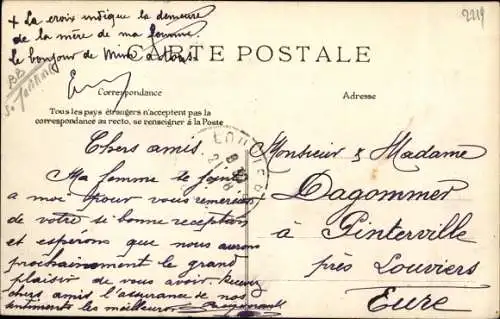 + La croix indique la demeure
de la mère de ma femme.
le bonjour de Mimi à tous.
2219
CARTE POSTALE
Correspondance
Adresse
Tous les pays étrangers n'acceptent pas la
correspondance au recto, se renseigner à la Poste
Chers amis
Ma femme se joint
a moi pour vous remercier
de votre si bonne reception
et espérons que nous aurons
prochainement le grand
plaisir de vous avoir. Recevez
chers amis l'assurance de nos
sentiments les meilleurs
Monsieur & Madame
Dagommer
à Pinterville
près Louviers
Eure